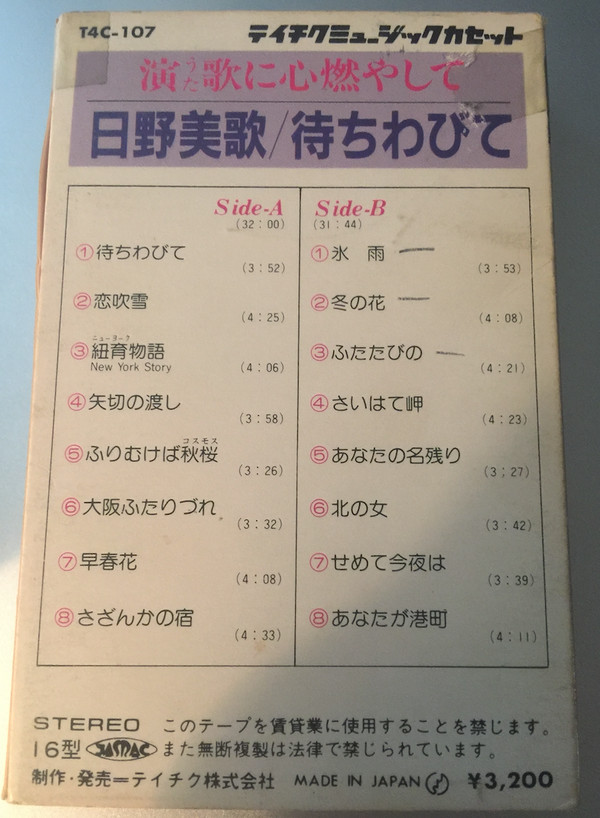 T4C-107
テイチクミュージックカセット
演歌に心燃やして
うた
日野美歌/待ちわびて
Side-A
(32:00)
①待ちわびて
(3:52)
②恋吹雪
(4:25)
ニューヨーク
③紐育物語
New York Story
(4:06)
④矢切の渡し
(3:58)
コスモス
⑤ふりむけば秋桜
(3:26)
⑥大阪ふたりづれ
(3:32)
⑦早春花
(4:08)
⑧さざんかの宿
(4:33)
Side-B
(31:44)
①氷 雨
(3:53)
②冬の花
(4:08)
③ふたたびの
(4:21)
④さいはて岬
(4:23)
⑤あなたの名残り
(3:27)
⑥北の女
(3:42)
⑦せめて今夜は
(3:39)
⑧あなたが港町
(4:11)
STEREO このテープを賃貸業に使用することを禁じます。
16型 JASRAC また無断複製は法律で禁じられています。
制作・発売=テイチク株式会社 MADE IN JAPAN ¥3,200